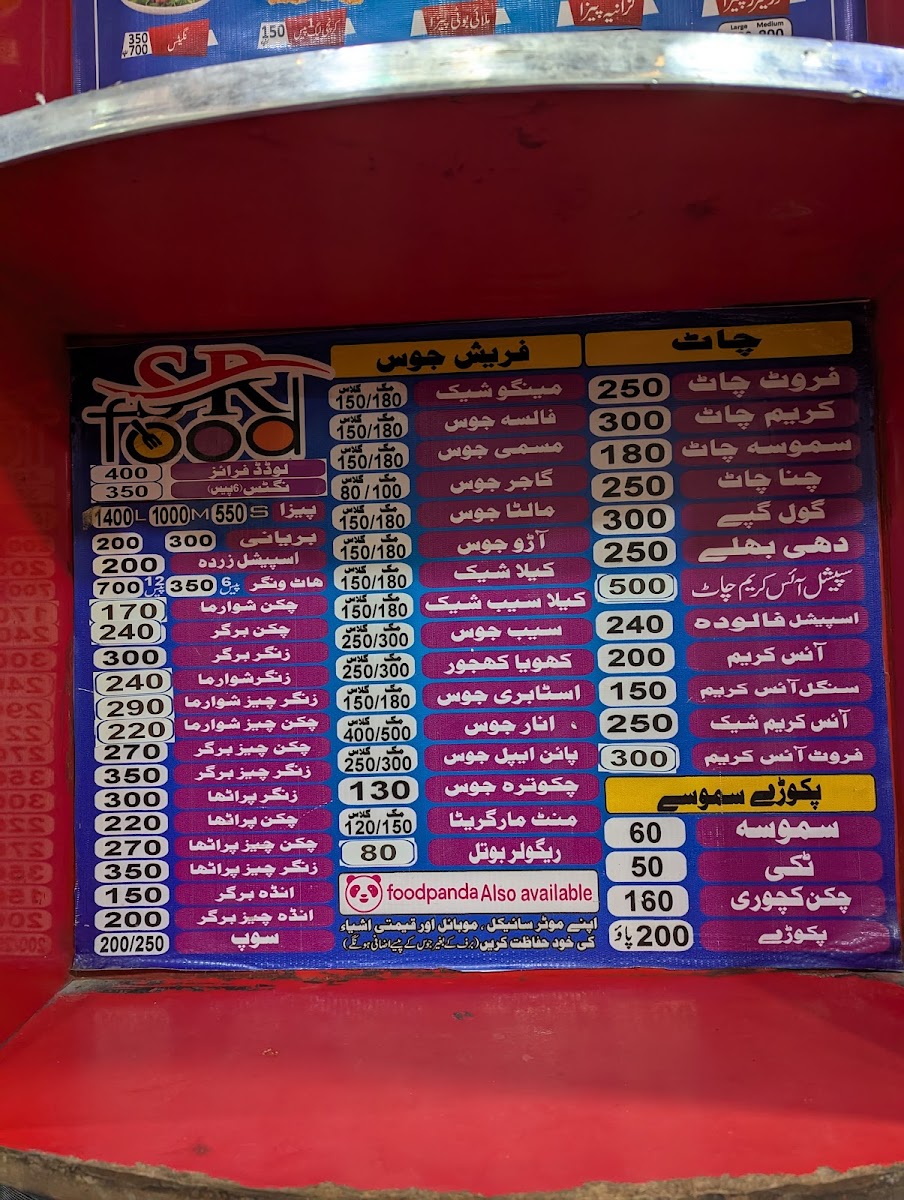 350
700
نگٹس
150
ملائی بوٹی پیزا
Large Medium
چاٹ
فروٹ چاٹ 250
کریم چاٹ 300
سموسہ چاٹ 180
چنا چاٹ 250
گول گپے 300
دھی بھلے 250
سپیشل آئس کریم چاٹ 500
اسپیشل فالودہ 240
آئس کریم 200
سنگل آئس کریم 150
آئس کریم شیک 250
فروٹ آئس کریم 300
پکوڑے سموسے
سموسہ 60
ٹکی 50
چکن کچوری 160
پکوڑے 200 پاؤ
فریش جوس
مینگو شیک مگ گلاس 150/180
فالسہ جوس مگ گلاس 150/180
مسمی جوس مگ گلاس 150/180
گاجر جوس مگ گلاس 80/100
مالٹا جوس مگ گلاس 150/180
آڑو جوس مگ گلاس 150/180
کیلا شیک مگ گلاس 150/180
کیلا سیب شیک مگ گلاس 150/180
سیب جوس مگ گلاس 250/300
کھویا کھجور مگ گلاس 250/300
اسٹابری جوس مگ گلاس 150/180
انار جوس مگ گلاس 400/500
پائن ایپل جوس مگ گلاس 250/300
چکوترہ جوس 130
منٹ مارگریٹا مگ گلاس 120/150
ریگولر بوتل 80
foodpanda Also available
اپنے موٹر سائیکل، موبائل اور قیمتی اشیاء
کی خود حفاظت کریں (برف کے بغیر جوس کے پیسے اضافی ہونگے)
SR
food
لوڈڈ فرائز 400
نگٹس (6 پیس) 350
پیزا S 550 M 1000 L 1400
بریانی 300 200
اسپیشل زردہ 200
ھاٹ ونگز 6 پیس 350 12 پیس 700
چکن شوارما 170
چکن برگر 240
زنگر برگر 300
زنگر شوارما 240
زنگر چیز شوارما 290
چکن چیز شوارما 220
چکن چیز برگر 270
زنگر چیز برگر 350
زنگر پراٹھا 300
چکن پراٹھا 220
چکن چیز پراٹھا 270
زنگر چیز پراٹھا 350
انڈہ برگر 150
انڈہ چیز برگر 200
سوپ 200/250